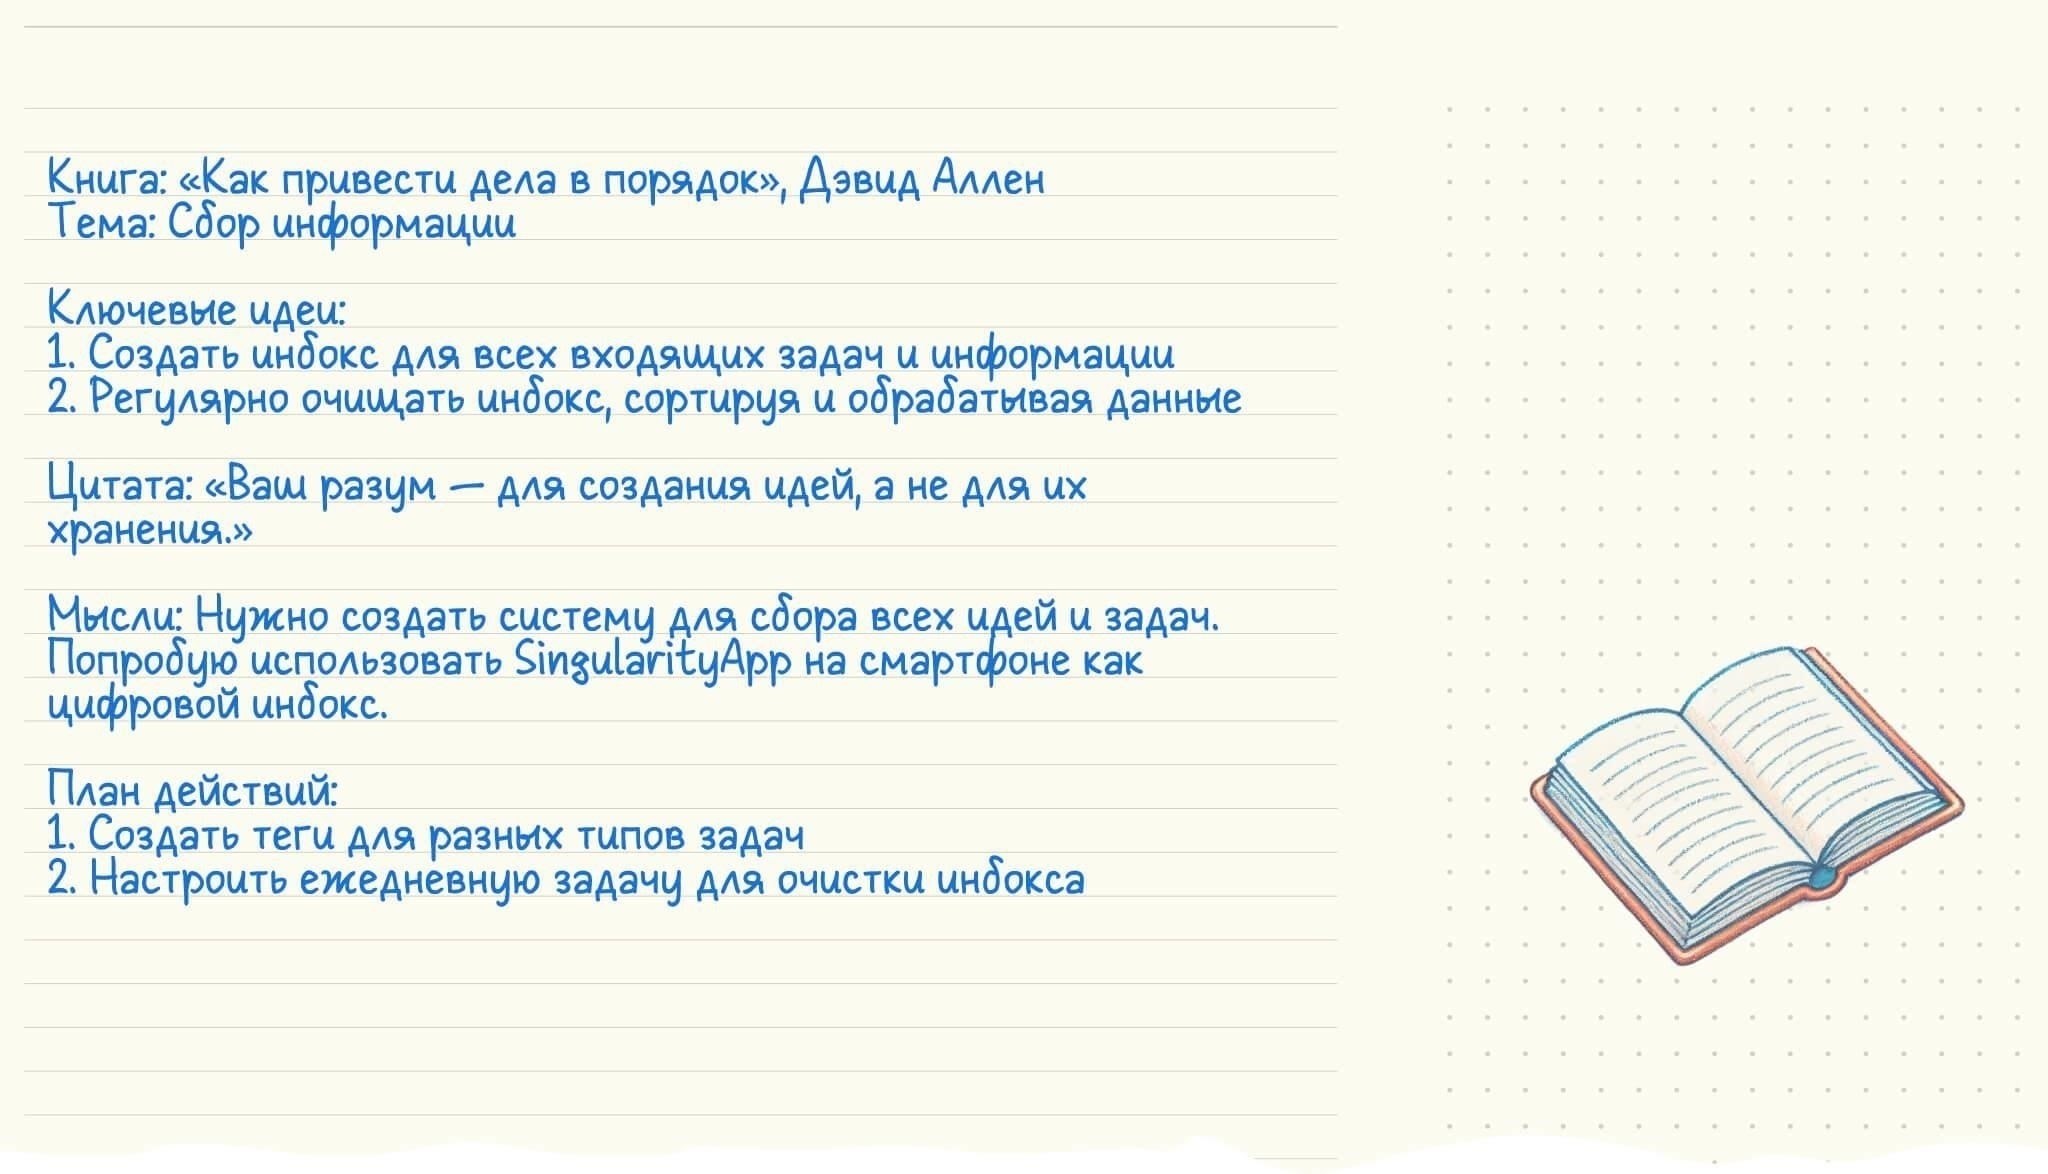 Книга: «Как привести дела в порядок», Дэвид Аллен
Тема: Сбор информации
Ключевые идеи:
1. Создать инбокс для всех входящих задач и информации
2. Регулярно очищать инбокс, сортируя и обрабатывая данные
Цитата: «Ваш разум — для создания идей, а не для их
хранения.»
Мысли: Нужно создать систему для сбора всех идей и задач.
Попробую использовать SingularityApp на смартфоне как
цифровой инбокс.
План действий:
1. Создать теги для разных типов задач
2. Настроить ежедневную задачу для очистки инбокса